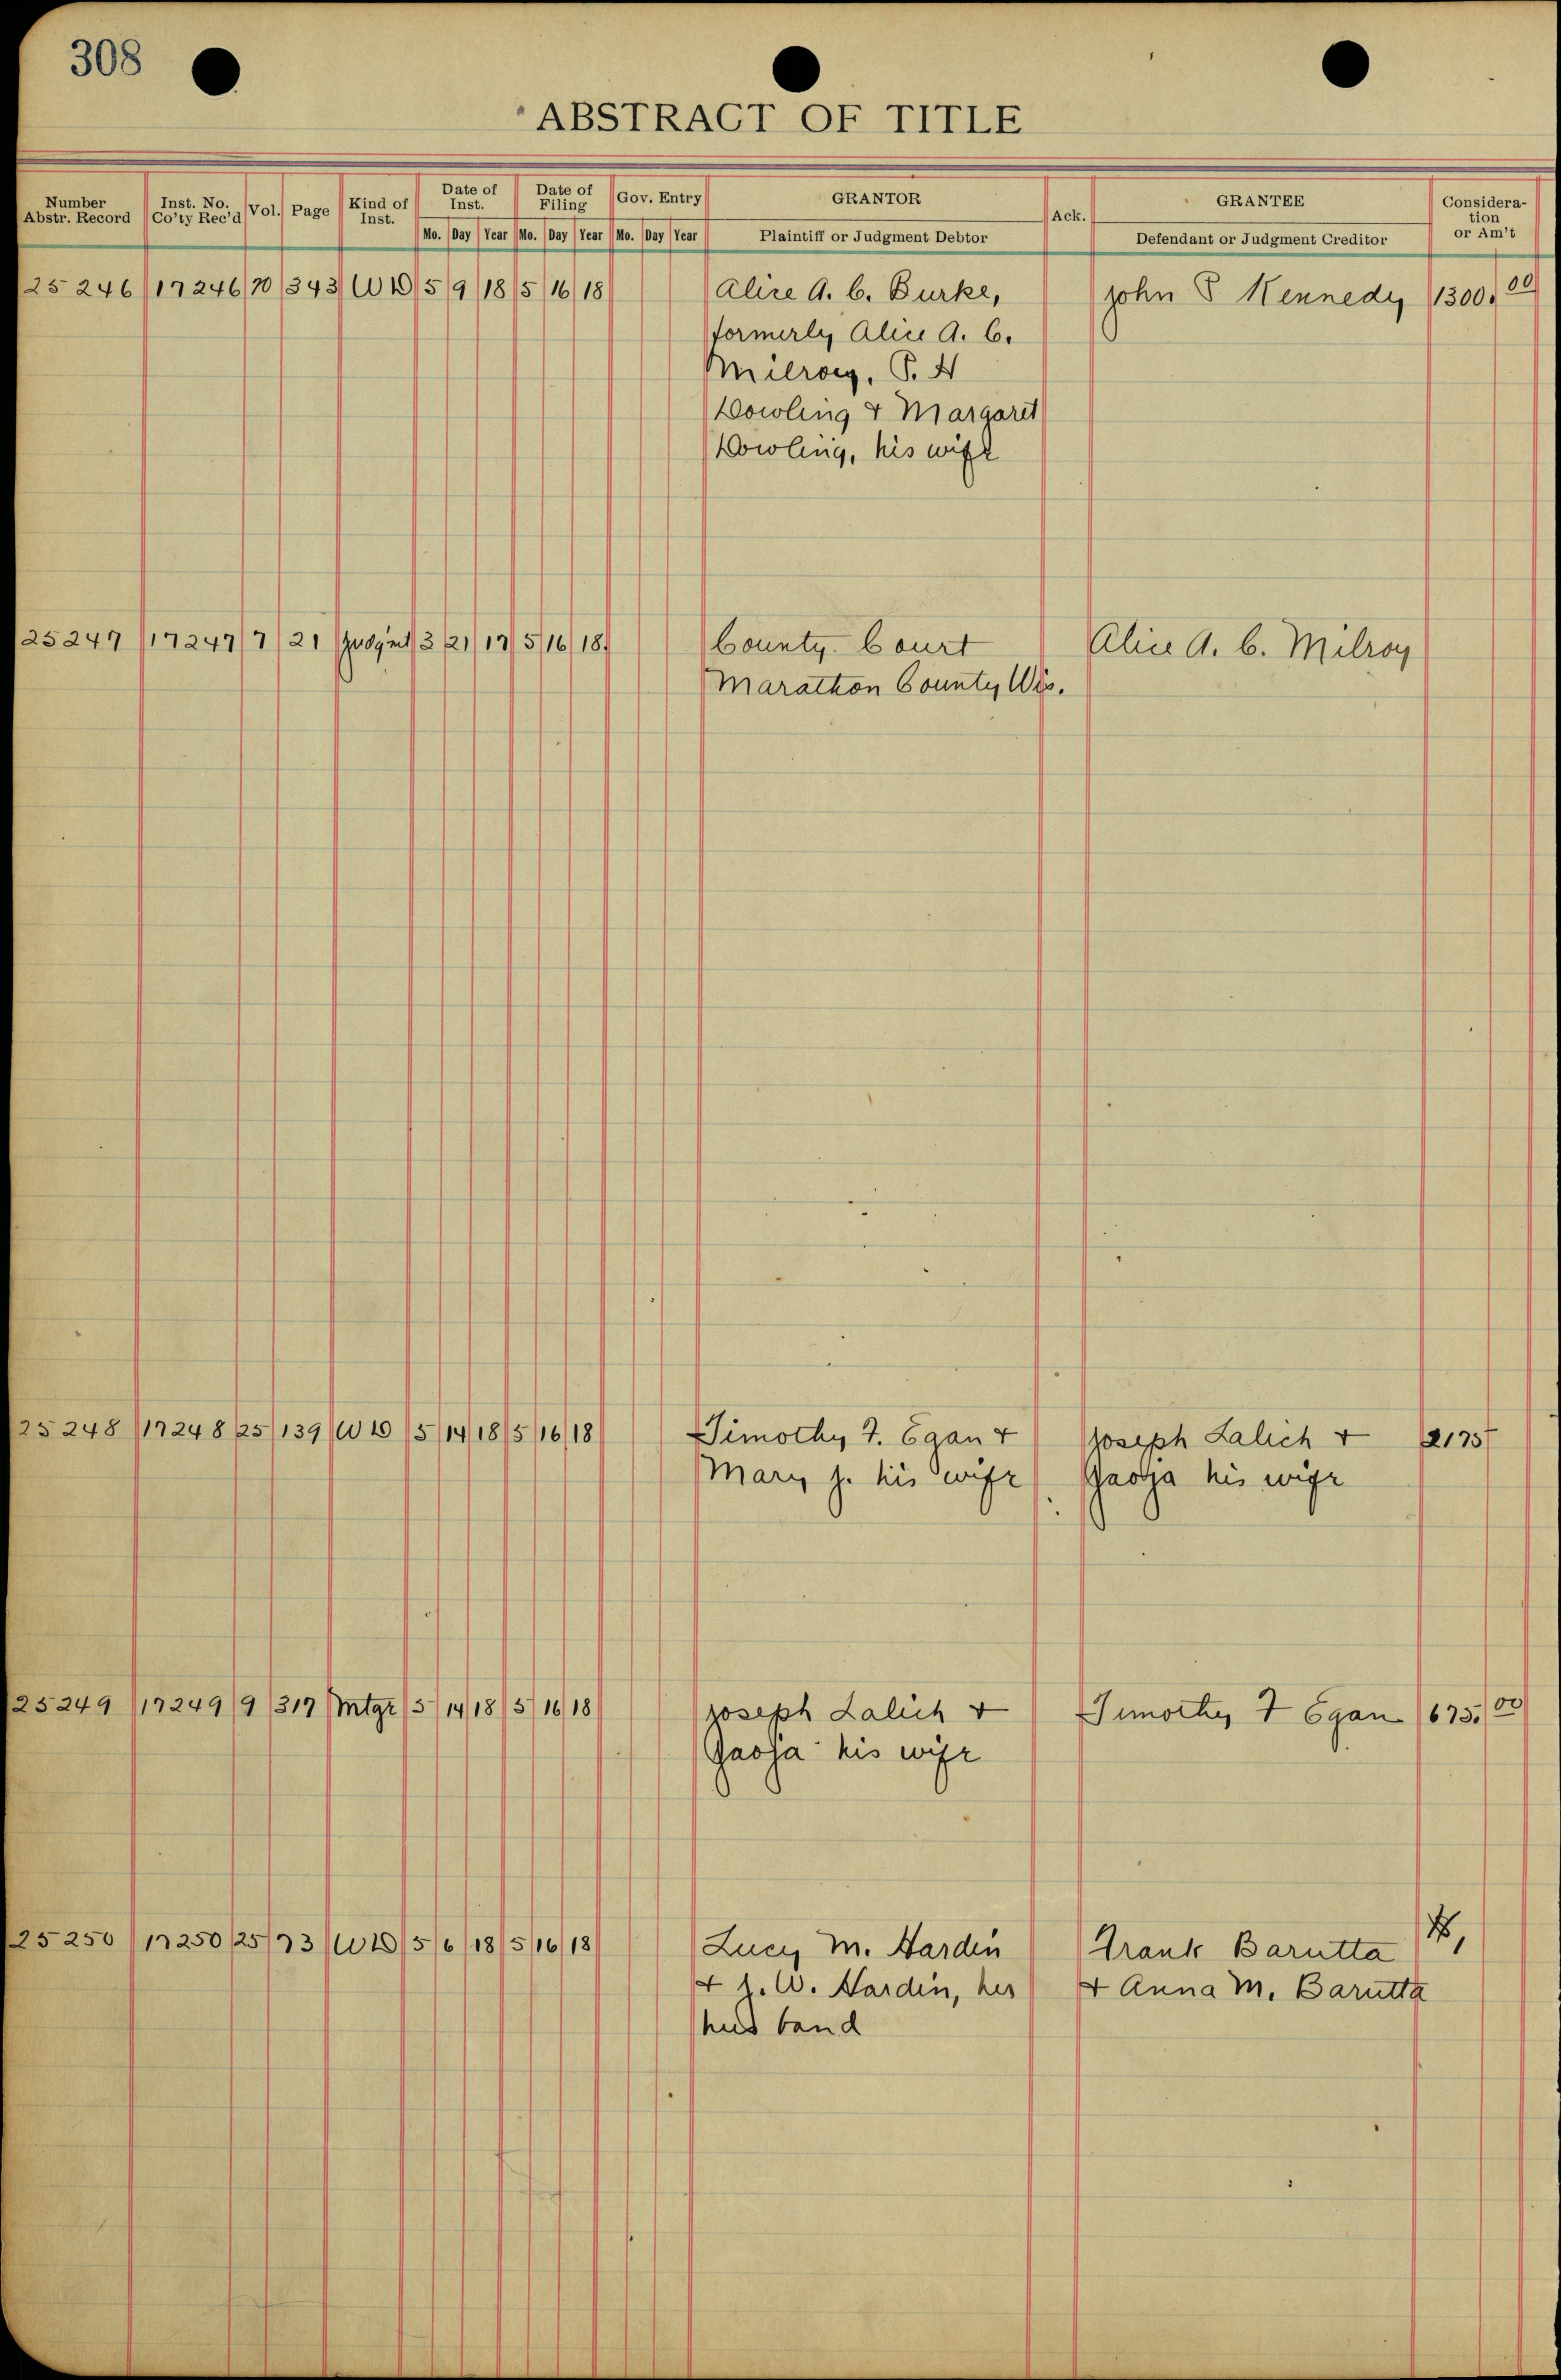 308
ABSTRACT OF TITLE
Number Abstr. Record | Inst. No. Co'ty Rec'd | Vol. | Page | Kind of Inst. | Date of Inst. Mo. Day Year | Date of Filing Mo. Day Year | Gov. Entry Mo. Day Year | GRANTOR Plaintiff or Judgment Debtor | Ack. | GRANTEE Defendant or Judgment Creditor | Consideration or Am't
25246 17246 343 WD 5 9 18 5 16 18 Alice A. C. Burke, John Kennedy 1300.00
formerly Alice A. C.
Milroy, P. H
Dowling & Margaret
Dowling, his wife
25247 17247 7 21 Judgmt 3 21 17 5 16 18 County Court Alice A. C. Milroy
Marathon County Wis.
25248 17248 25 139 WD 5 14 18 5 16 18 Timothy F. Egan & Joseph Lalich & 2175
Mary J. his wife his wife
25249 17249 9 317 Mtge 5 14 18 5 16 18 Joseph Lalich & Timothy F Egan 675.00
his wife
25250 17250 25 73 WD 5 6 18 5 16 18 Lucy M. Hardin Frank Barutta
& J. W. Hardin, her & Anna M. Barutta
husband